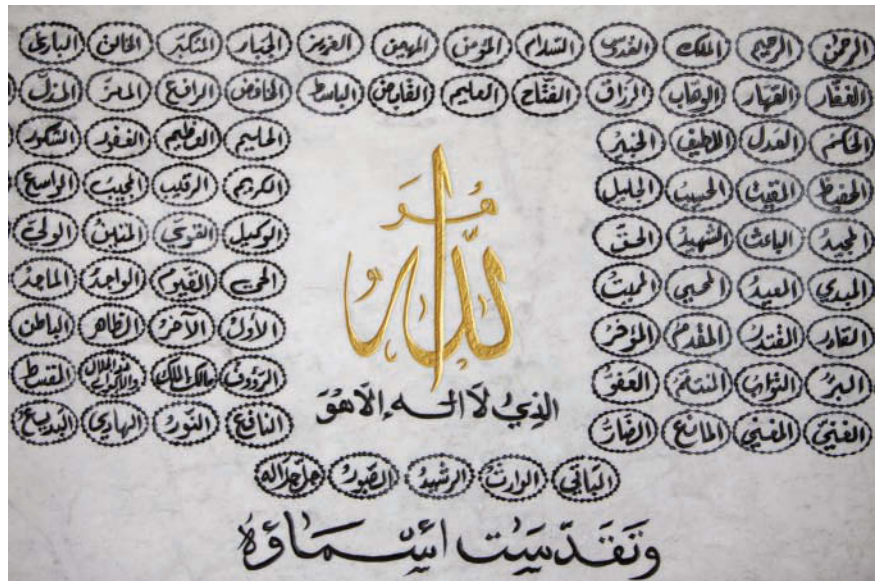 الرحمن الرحيم الملك القدوس السلام المؤمن المهيمن العزيز الجبار المتكبر الخالق البارئ
الغفار القهار الوهاب الرزاق الفتاح العليم القابض الباسط الخافض الرافع المعز المذل
الحكم العدل اللطيف الخبير الحليم العظيم الغفور الشكور
الحفيظ المقيت الحسيب الجليل الكريم الرقيب المجيب الواسع
المجيد الباعث الشهيد الحق الوكيل القوي المتين الولي
المبدي المعيد المحيي المميت الحي القيوم الواجد الماجد
القادر المقتدر المقدم المؤخر الأول الآخر الظاهر الباطن
البر التواب المنتقم العفو الرؤوف مالك الملك ذو الجلال والإكرام المقسط
الغني المغني المانع الضار النافع النور الهادي البديع
هو
الله
الذي لا اله إلا هو
الباقي الوارث الرشيد الصبور جل جلاله
وتقدست أسماؤه